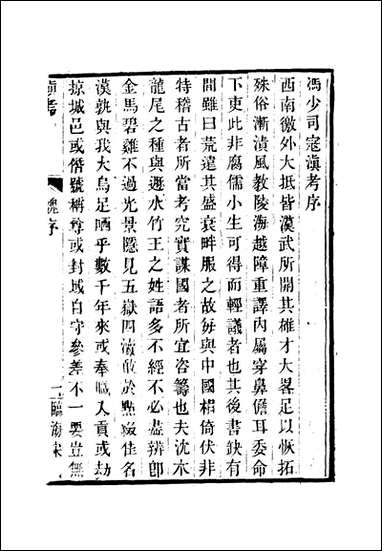 馮少司寇滇考序
西南徼外大抵皆漢武所開其雄才大畧足以恢拓
殊俗漸漬風教陵海越障重譯內屬穿鼻儋耳委命
下吏此非腐儒小生可得而輕議者也其後書缺有
間雖曰荒遠其盛衰畔服之故每與中國相倚伏非
特稽古者所當考究實謀國者所宜咨籌也夫沈木
龍尾之種與遯水竹王之姓語多不經不必盡辨卽
金馬碧雞不過光景隱見五嶽四瀆敢於點竄佳名
漢孰與我大烏足哂乎數千年來或奉職入貢或劫
掠城邑或僭號稱尊或封域自守參差不一要豈無
滇考
序
一
臨海宋